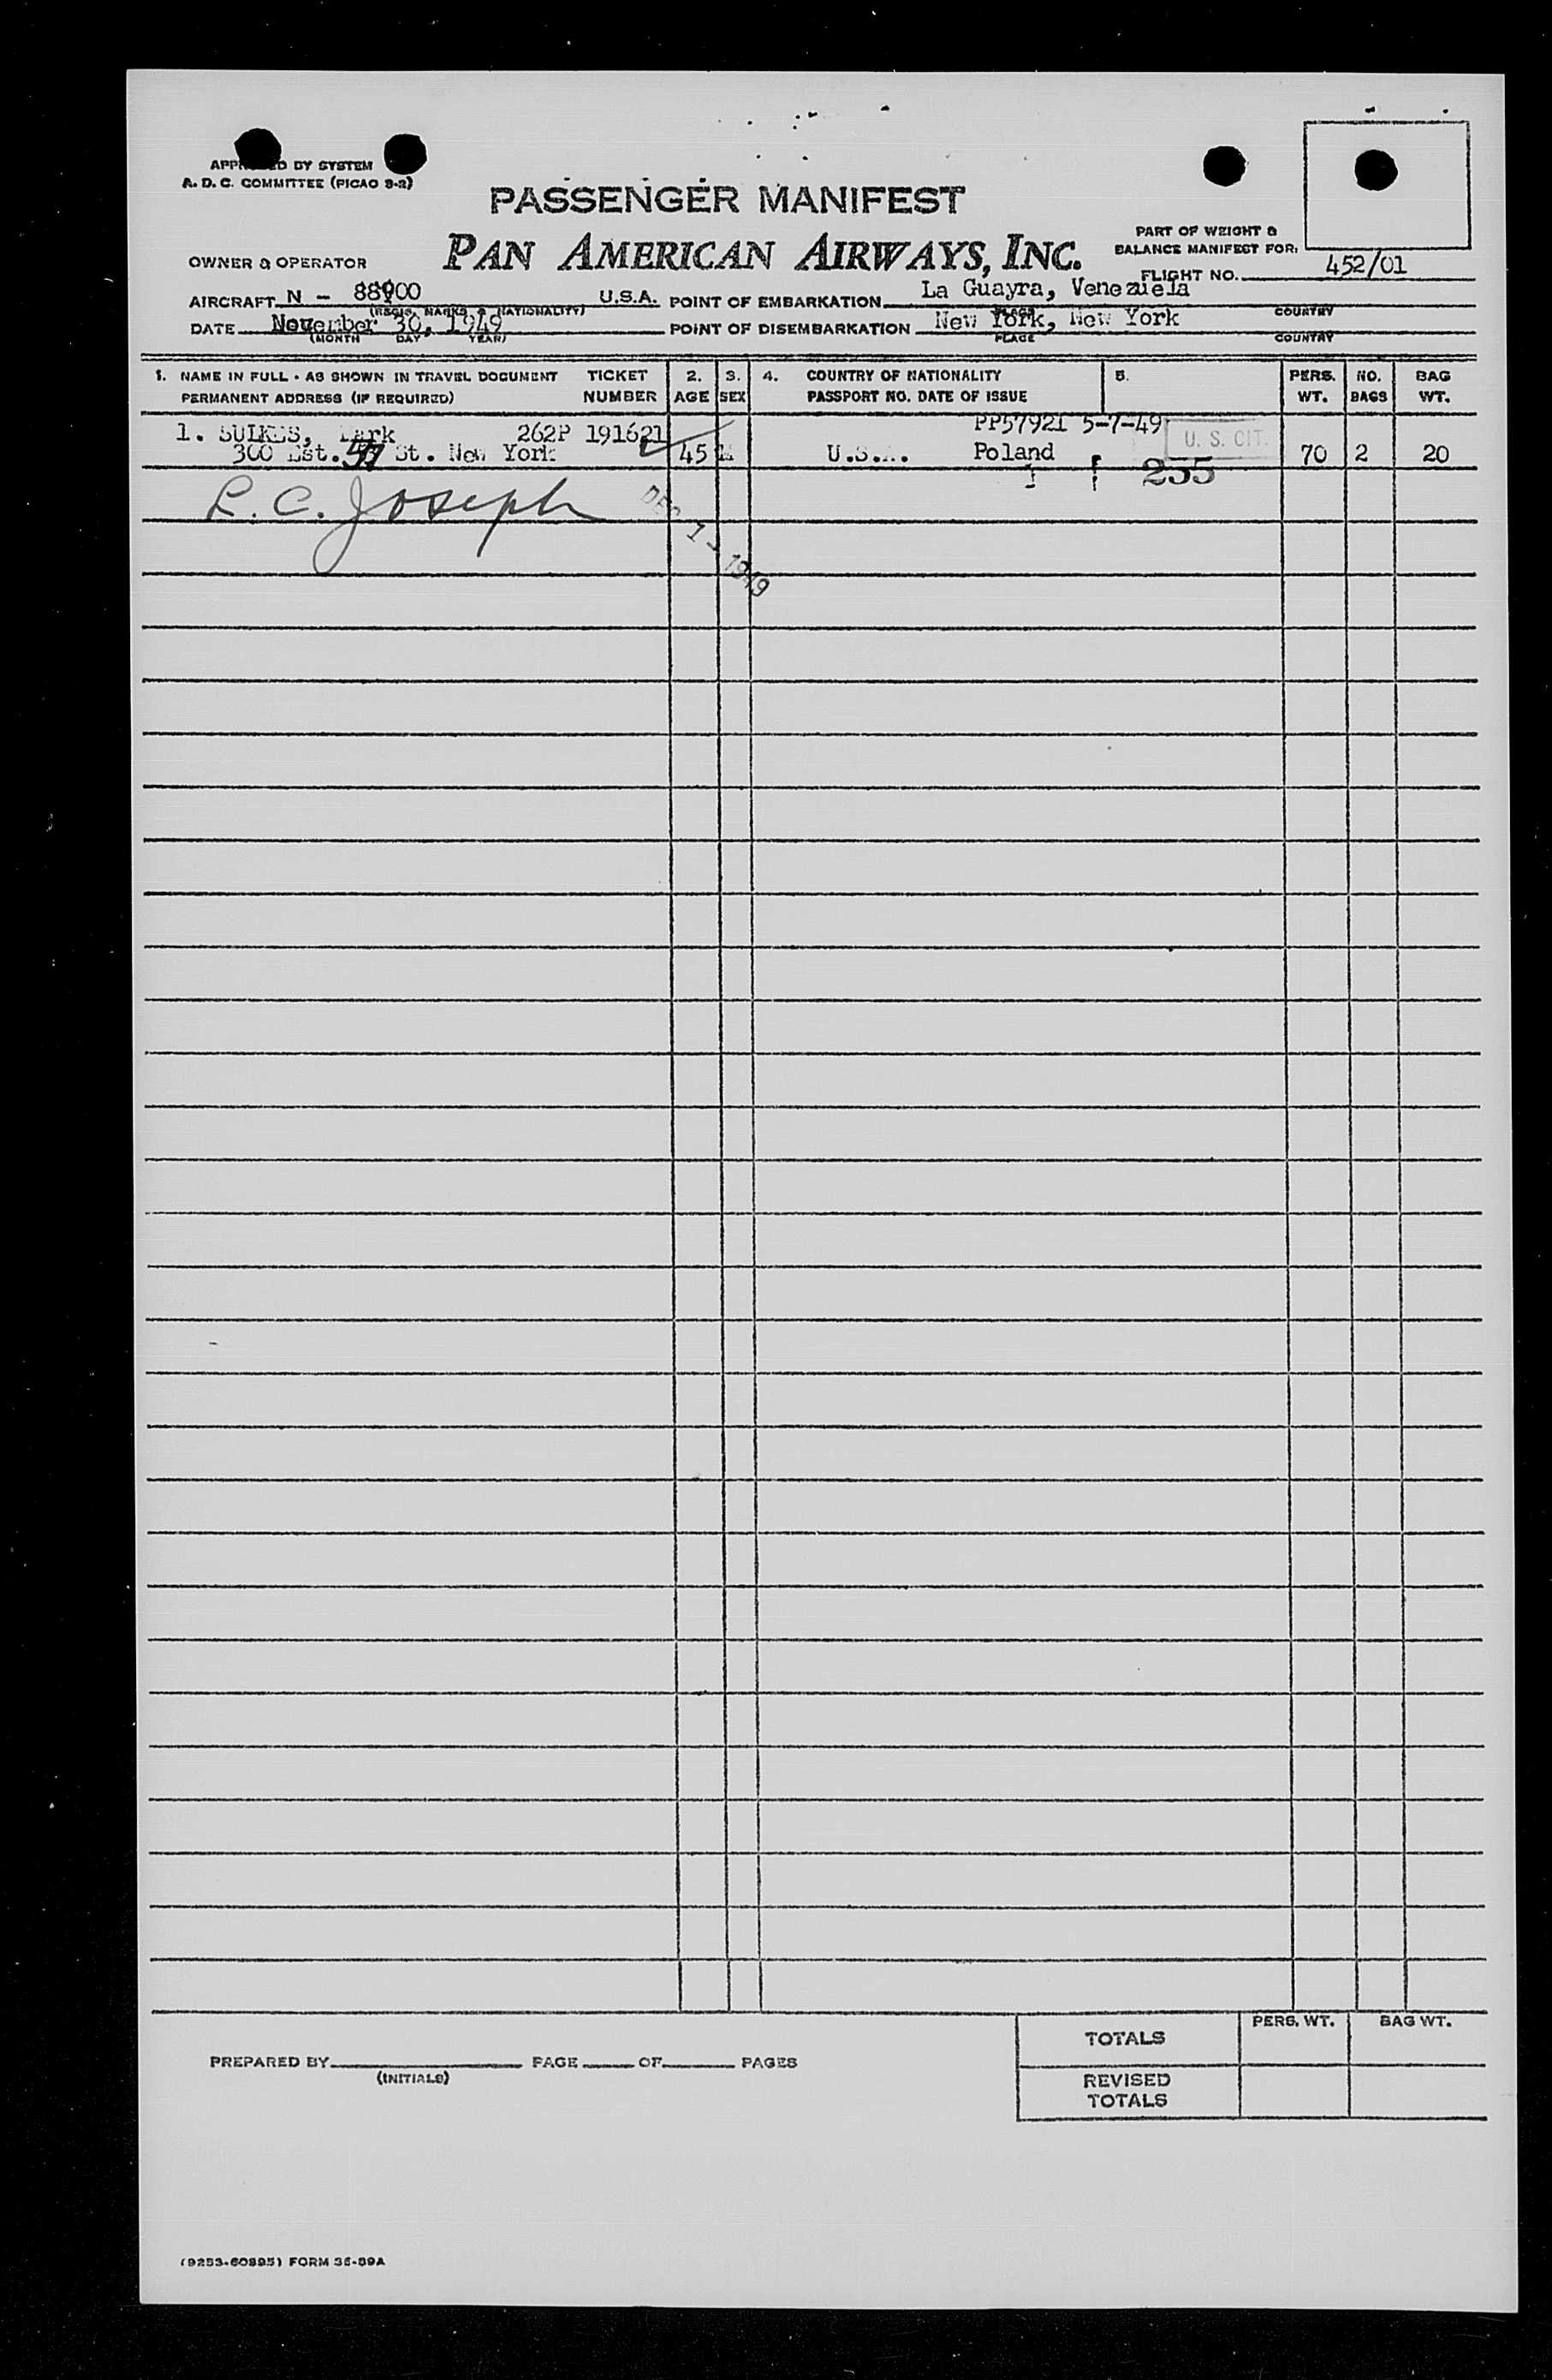 BY SYSTEM
A. D. C. COMMITTEE (PICAO 9-2)
PASSENGER MANIFEST
PAN AMERICAN AIRWAYS, INC.
PART OF WEIGHT &
BALANCE MANIFEST FOR:
OWNER & OPERATOR
FLIGHT NO. 452/01
AIRCRAFT N - 88900 U.S.A. POINT OF EMBARKATION La Guayra, Venezuela
(REGIS. MARKS & NATIONALITY) PLACE COUNTRY
DATE November 30, 1949 POINT OF DISEMBARKATION New York, New York
(MONTH DAY YEAR) PLACE COUNTRY
1. NAME IN FULL - AS SHOWN IN TRAVEL DOCUMENT TICKET 2. 3. 4. COUNTRY OF NATIONALITY 5. PERS. NO. BAG
PERMANENT ADDRESS (IF REQUIRED) NUMBER AGE SEX PASSPORT NO. DATE OF ISSUE WT. BAGS WT.
1. SULKES, Mark 262P 191621 PP57921 5-7-49 U. S. CIT.
300 Est. 57 St. New York 45 M U.S.A. Poland 70 2 20
255
L. C. Joseph
DEC 1 - 1949
TOTALS PERS. WT. BAG WT.
PREPARED BY PAGE OF PAGES
(INITIALS)
REVISED
TOTALS
(9253-60895) FORM 36-59A